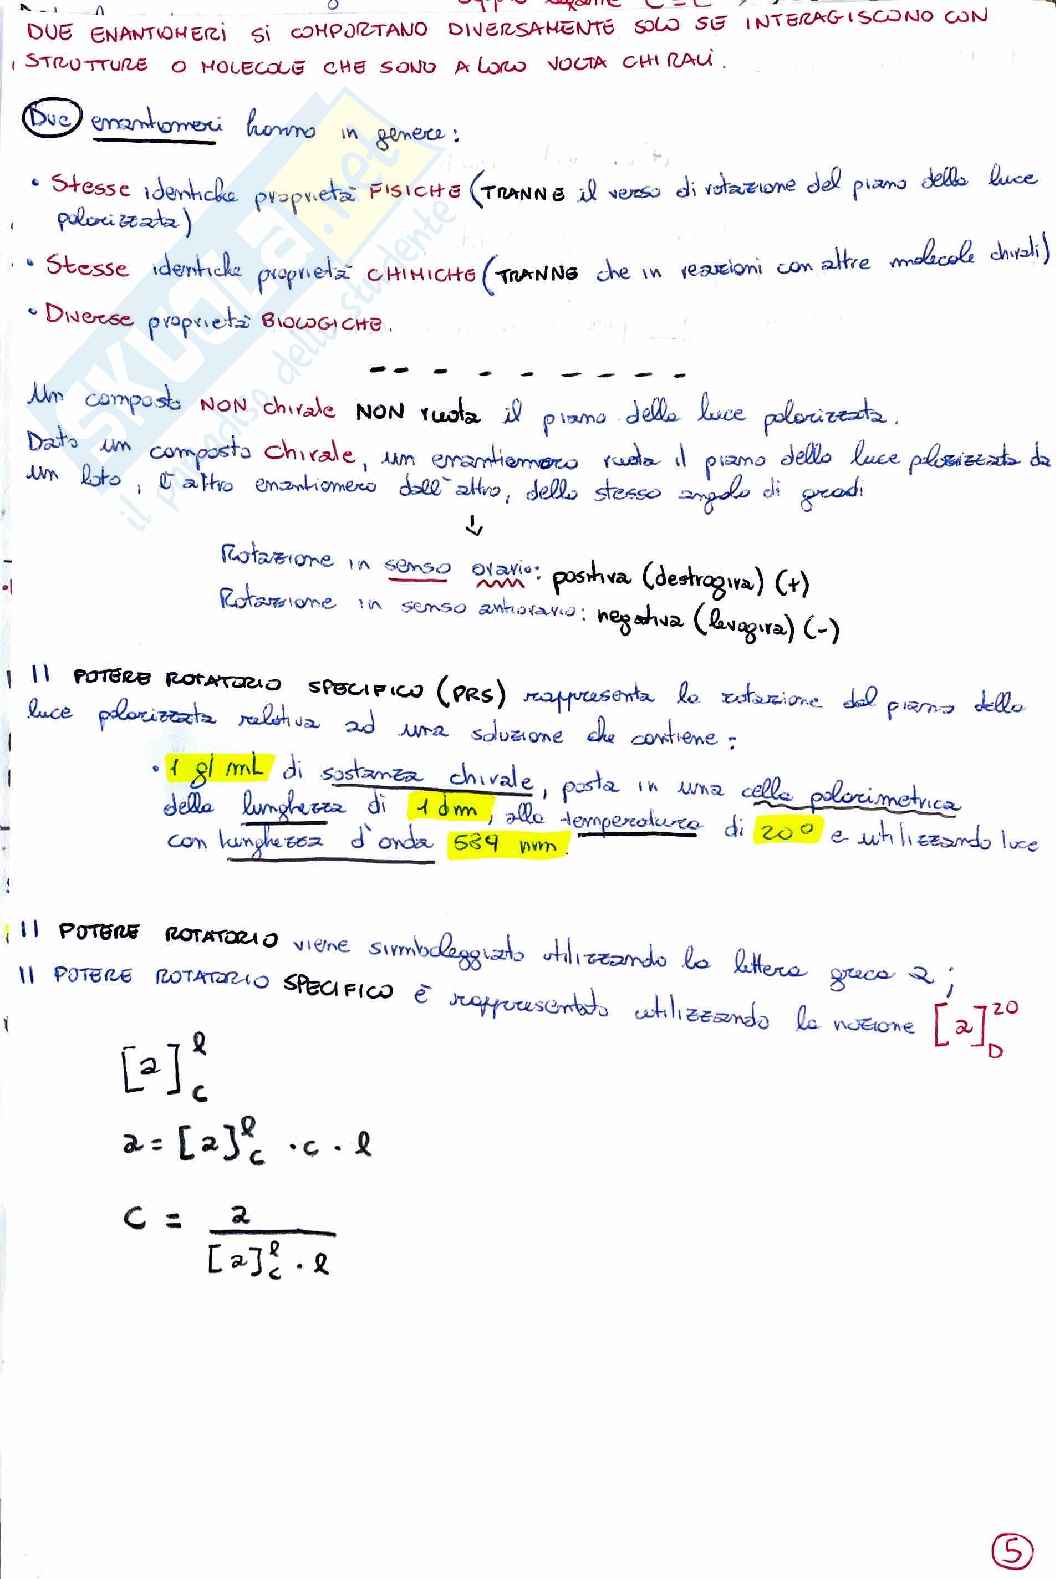 DUE ENANTIOMERI SI COMPORTANO DIVERSAMENTE SOLO SE INTERAGISCONO CON
STRUTTURE O MOLECOLE CHE SONO A LORO VOLTA CHIRALI.
Due enantiomeri hanno in genere:
• Stesse identiche proprietà FISICHE (TRANNE il verso di rotazione del piano della luce
polarizzata)
• Stesse identiche proprietà CHIMICHE (TRANNE che in reazioni con altre molecole chirali)
• Diverse proprietà BIOLOGICHE.
Un composto NON chirale NON ruota il piano della luce polarizzata.
Dato un composto chirale, un enantiomero ruota il piano della luce polarizzata da
un lato, l'altro enantiomero dall'altro, dello stesso angolo di gradi
↓
Rotazione in senso orario: positiva (destrogira) (+)
Rotazione in senso antiorario: negativa (levogira) (-)
Il POTERE ROTATORIO SPECIFICO (PRS) rappresenta la rotazione del piano della
luce polarizzata relativa ad una soluzione che contiene:
• 1 g/mL di sostanza chirale, posta in una cella polarimetrica
della lunghezza di 1 dm, alla temperatura di 20° e utilizzando luce
con lunghezza d'onda 589 nm.
Il POTERE ROTATORIO viene simboleggiato utilizzando la lettera greca α;
Il POTERE ROTATORIO SPECIFICO è rappresentato utilizzando la nozione [α]²⁰_D
[α]^l_c
α = [α]^l_c · c · l
C = α / [α]^l_c · l
5
SKUOLA.net
il paradiso dello studente